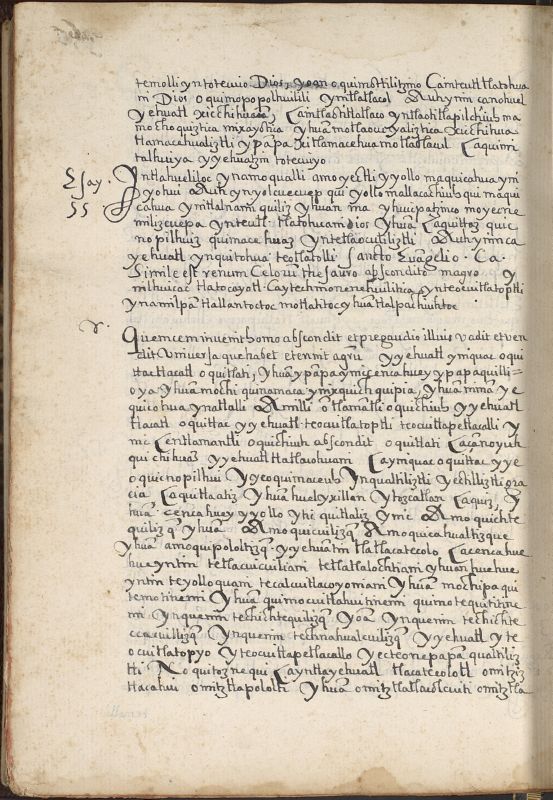 temolli yn totecuio Dios, yoan oquimottilitzino Camtecutl tlatohua
ni Dios oquimopopolhuilili ynitlatlacol Auh ynin canohuel
yehuatl xicchihuacā, Camtlaohtitlatlaco yntlaohtlapilchiuh ma
mochoquiztica mixayotica yhuā motlaocuyaliztica xicchihua
tlamacehualiztli ypāpa xitlamacehua motlatlacul Caquimi
talhuiya yyehuatzin totecuiyo
Esay. Yntlahueliloc ynamo qualli amo yectli yyollo maquicahua yni
55 yohui Auh ynyolcuecuep qui yollomallacachiuh qui maqui
cahua ynitlalnamiquiliz yhuan ma yhuicpatzinco moyecne
milizcuepa ynteutl tlatohuani dios yhuā caquittaz quic
nopilhuiz quimacehuaz yntetlaocultiliztli Auh ynin ca
yehuatl ynquitohua teotlatolli Sancto Euāgelio. Ca.
Simile est renum Celorū thesauro abscondito magro y
nilhuicac tlatocayotl Caytechmonenehuilitica ynteocuitlatoptli
ynamilpā tlallantoctoc motlatitoc yhuā tlalpachiuhtoc
r. Quem cem invenit homo abscondit et pre gaudio illius vadit et ven
dit Universa que habet et emit agrū yyehuatl yniquac oqui
ttac tlacatl oquitlati, yhuā ypāpa ynic cenca huey ypapaquilli=
oya yhuā mochi quinamaca ynixquich quipia, yhuā nimā ye
quicohua ynatlalli Amilli ōtlamātli oquichiuh yyehuatl
tlacatl oquittac yyehuatl teocuitlatoptli teocuitlapetlacalli y
nic Centlamantli oquichiuh abscondit oquitlati Caçanoyuh
quichihuaz yyehuatl tlatlacohuani Cayniquac oquittac yye
oquicnopilhui yyeoquimaceuh Ynqualtiliztli yectiliztli gra
cia Caquitlaatiz yhuā huel yxillan ytozcatlan Caquiz, y
huā cenca huey yyollo yhi quitlaliz ynic Amo quichte
quilizq̄ yhuā Amo quicuilizq̄ Amo quicahualtizque
yhuā amo quipololtizq̄ yyehuātin tlatlacatecolo Cacenca hue
hueyntin tetlacuicuiliani tetlatlalochtiani yhuan huehue
yntin teyolloquani tecalcuitlacoyoniani yhuā mochipa qui
temotinemi yhuā quimocuitlahuitinemi quimotequitiine
mi Ynquenin techichtequilizq̄ yoā ynquenin techichte
ccacuillizq̄ ynquenin technahualcuilizq̄ yyehuatl yte
ocuitlatopyo yteocuitlapetlacallo yecteonepapā qualtiliz
tli No quitoznequi Cayntlayehuatl tlacatecolotl omitziz
tlacahui omitztlapololti yhuā omitztlatlacolcuiti omitztla